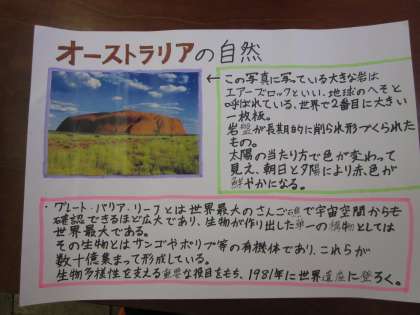 オーストラリアの自然
←この写真に写っている大きな岩は
エアーズロックといい、地球のへそと
呼ばれている、世界で2番目に大きい
一枚板。
岩盤が長期的に削られ形づくられた
もの。
太陽の当たり方で色が変わって
見え、朝日と夕陽により赤色が
鮮やかになる。
・グレート・バリア・リーフとは世界最大のさんご礁で宇宙空間からも
確認できるほど広大であり、生物が作り出した単一の構物としては
世界最大である。
その生物とはサンゴやポリプ等の有機体であり、これらが
数十億集まって形成している。
生物多様性を支える重要な役目をもち、1981年に世界遺産に登ろく。